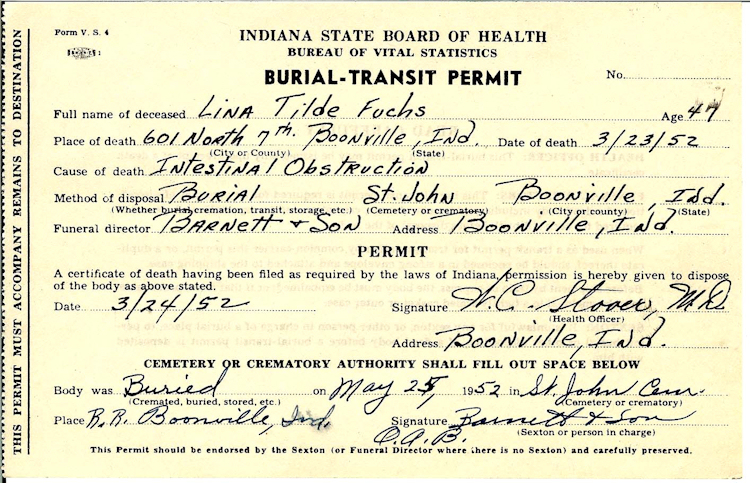 Form V. S. 4
INDIANA STATE BOARD OF HEALTH
BUREAU OF VITAL STATISTICS
BURIAL-TRANSIT PERMIT
No.
Full name of deceased Lina Tilde Fuchs Age 47
Place of death 601 North 7th. Boonville, Ind. Date of death 3/23/52
(City or County) (State)
Cause of death Intestinal Obstruction
Method of disposal Burial St. John Boonville, Ind.
(Whether burial, cremation, transit, storage, etc.) (Cemetery or crematory) (City or county) (State)
Funeral director Barnett & Son Address Boonville, Ind.
PERMIT
A certificate of death having been filed as required by the laws of Indiana, permission is hereby given to dispose
of the body as above stated.
Date 3/24/52 Signature W. C. Stover, M.D.
(Health Officer)
Address Boonville, Ind.
CEMETERY OR CREMATORY AUTHORITY SHALL FILL OUT SPACE BELOW
Body was Buried on May 25, 1952 in St. John Cem.
(Cremated, buried, stored, etc.) (Cemetery or crematory)
Place R.R. Boonville, Ind. Signature Barnett & Son
O.A.B. (Sexton or person in charge)
This Permit should be endorsed by the Sexton (or Funeral Director where there is no Sexton) and carefully preserved.
THIS PERMIT MUST ACCOMPANY REMAINS TO DESTINATION